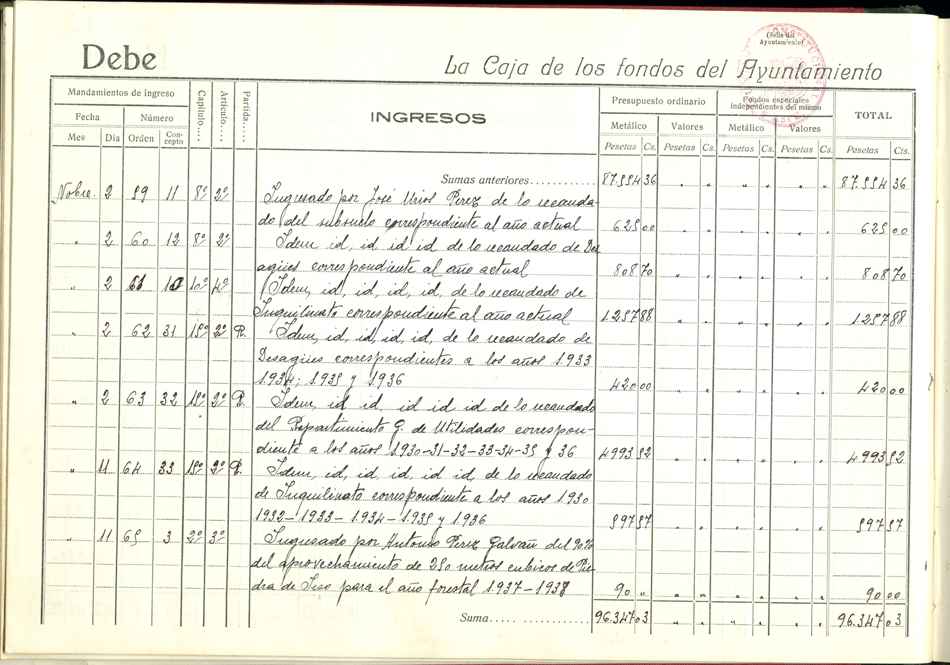 Debe
La Caja de los fondos del Ayuntamiento
(Sello del Ayuntamiento)
Mandamientos de ingreso Capítulo.... Artículo.... Partida.... INGRESOS Presupuesto ordinario Fondos especiales independientes del mismo TOTAL
Fecha Número Metálico Valores Metálico Valores
Mes Día Orden Concepto Pesetas Cs. Pesetas Cs. Pesetas Cs. Pesetas Cs. Pesetas Cts.
Sumas anteriores............ 87.554 36 " " " " " " 87.554 36
Nobre. 2 59 11 8º 2º Ingresado por José Urios Perez de lo recauda-
do del subsuelo correspondiente al año actual 625 00 " " " " " " 625 00
" 2 60 12 8º 2º Idem, id, id id id de lo recaudado de Des
agües correspondiente al año actual 808 70 " " " " " " 808 70
" 2 61 10 10º 4º Idem, id, id, id, id, de lo recaudado de
Inquilinato correspondiente al año actual 1.257 88 " " " " " " 1.257 88
" 2 62 31 15º 2º R. Idem, id, id, id, id, de lo recaudado de
Desagües correspondientes a los años 1933
1934; 1935 y 1936 420 00 " " " " " " 420 00
" 2 63 32 15º 2º R. Idem, id id, id id id de lo recaudado
del Repartimiento G. de Utilidades correspon-
diente a los años 1930-31-32-33-34-35 y 36 4993 52 " " " " " " 4993 52
" 11 64 33 15º 2º R. Idem, id, id, id, id, id, de lo recaudado
de Inquilinato correspondiente a los años 1930
1932-1933-1934-1935 y 1936 597 57 " " " " " " 597 57
" 11 65 3 2º 3º Ingresado por Antonio Perez Galvañ del 90%
del aprovechamiento de 250 metros cubicos de Pie-
dra de Jiso para el año forestal 1.937-1938 90 " " " " " " " 90 00
Suma..... ............. 96.347 03 " " " " " " 96.347 03